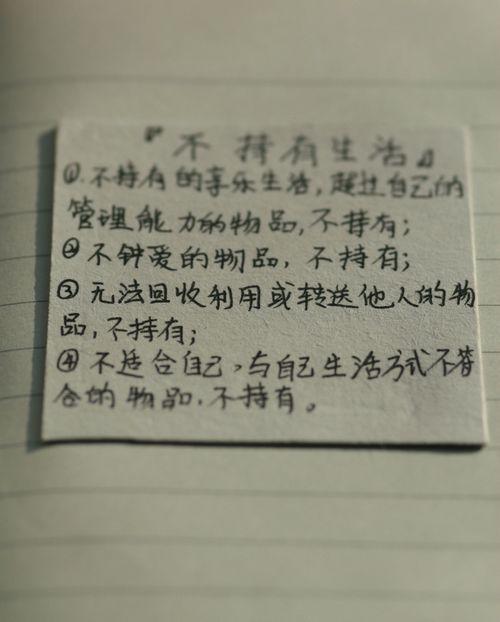 『不持有生活』
①.不持有的享乐生活,超过自己的
管理能力的物品,不持有;
②不钟爱的物品,不持有;
③无法回收利用或转送他人的物
品,不持有;
④不适合自己,与自己生活方式不符
合的物品.不持有。